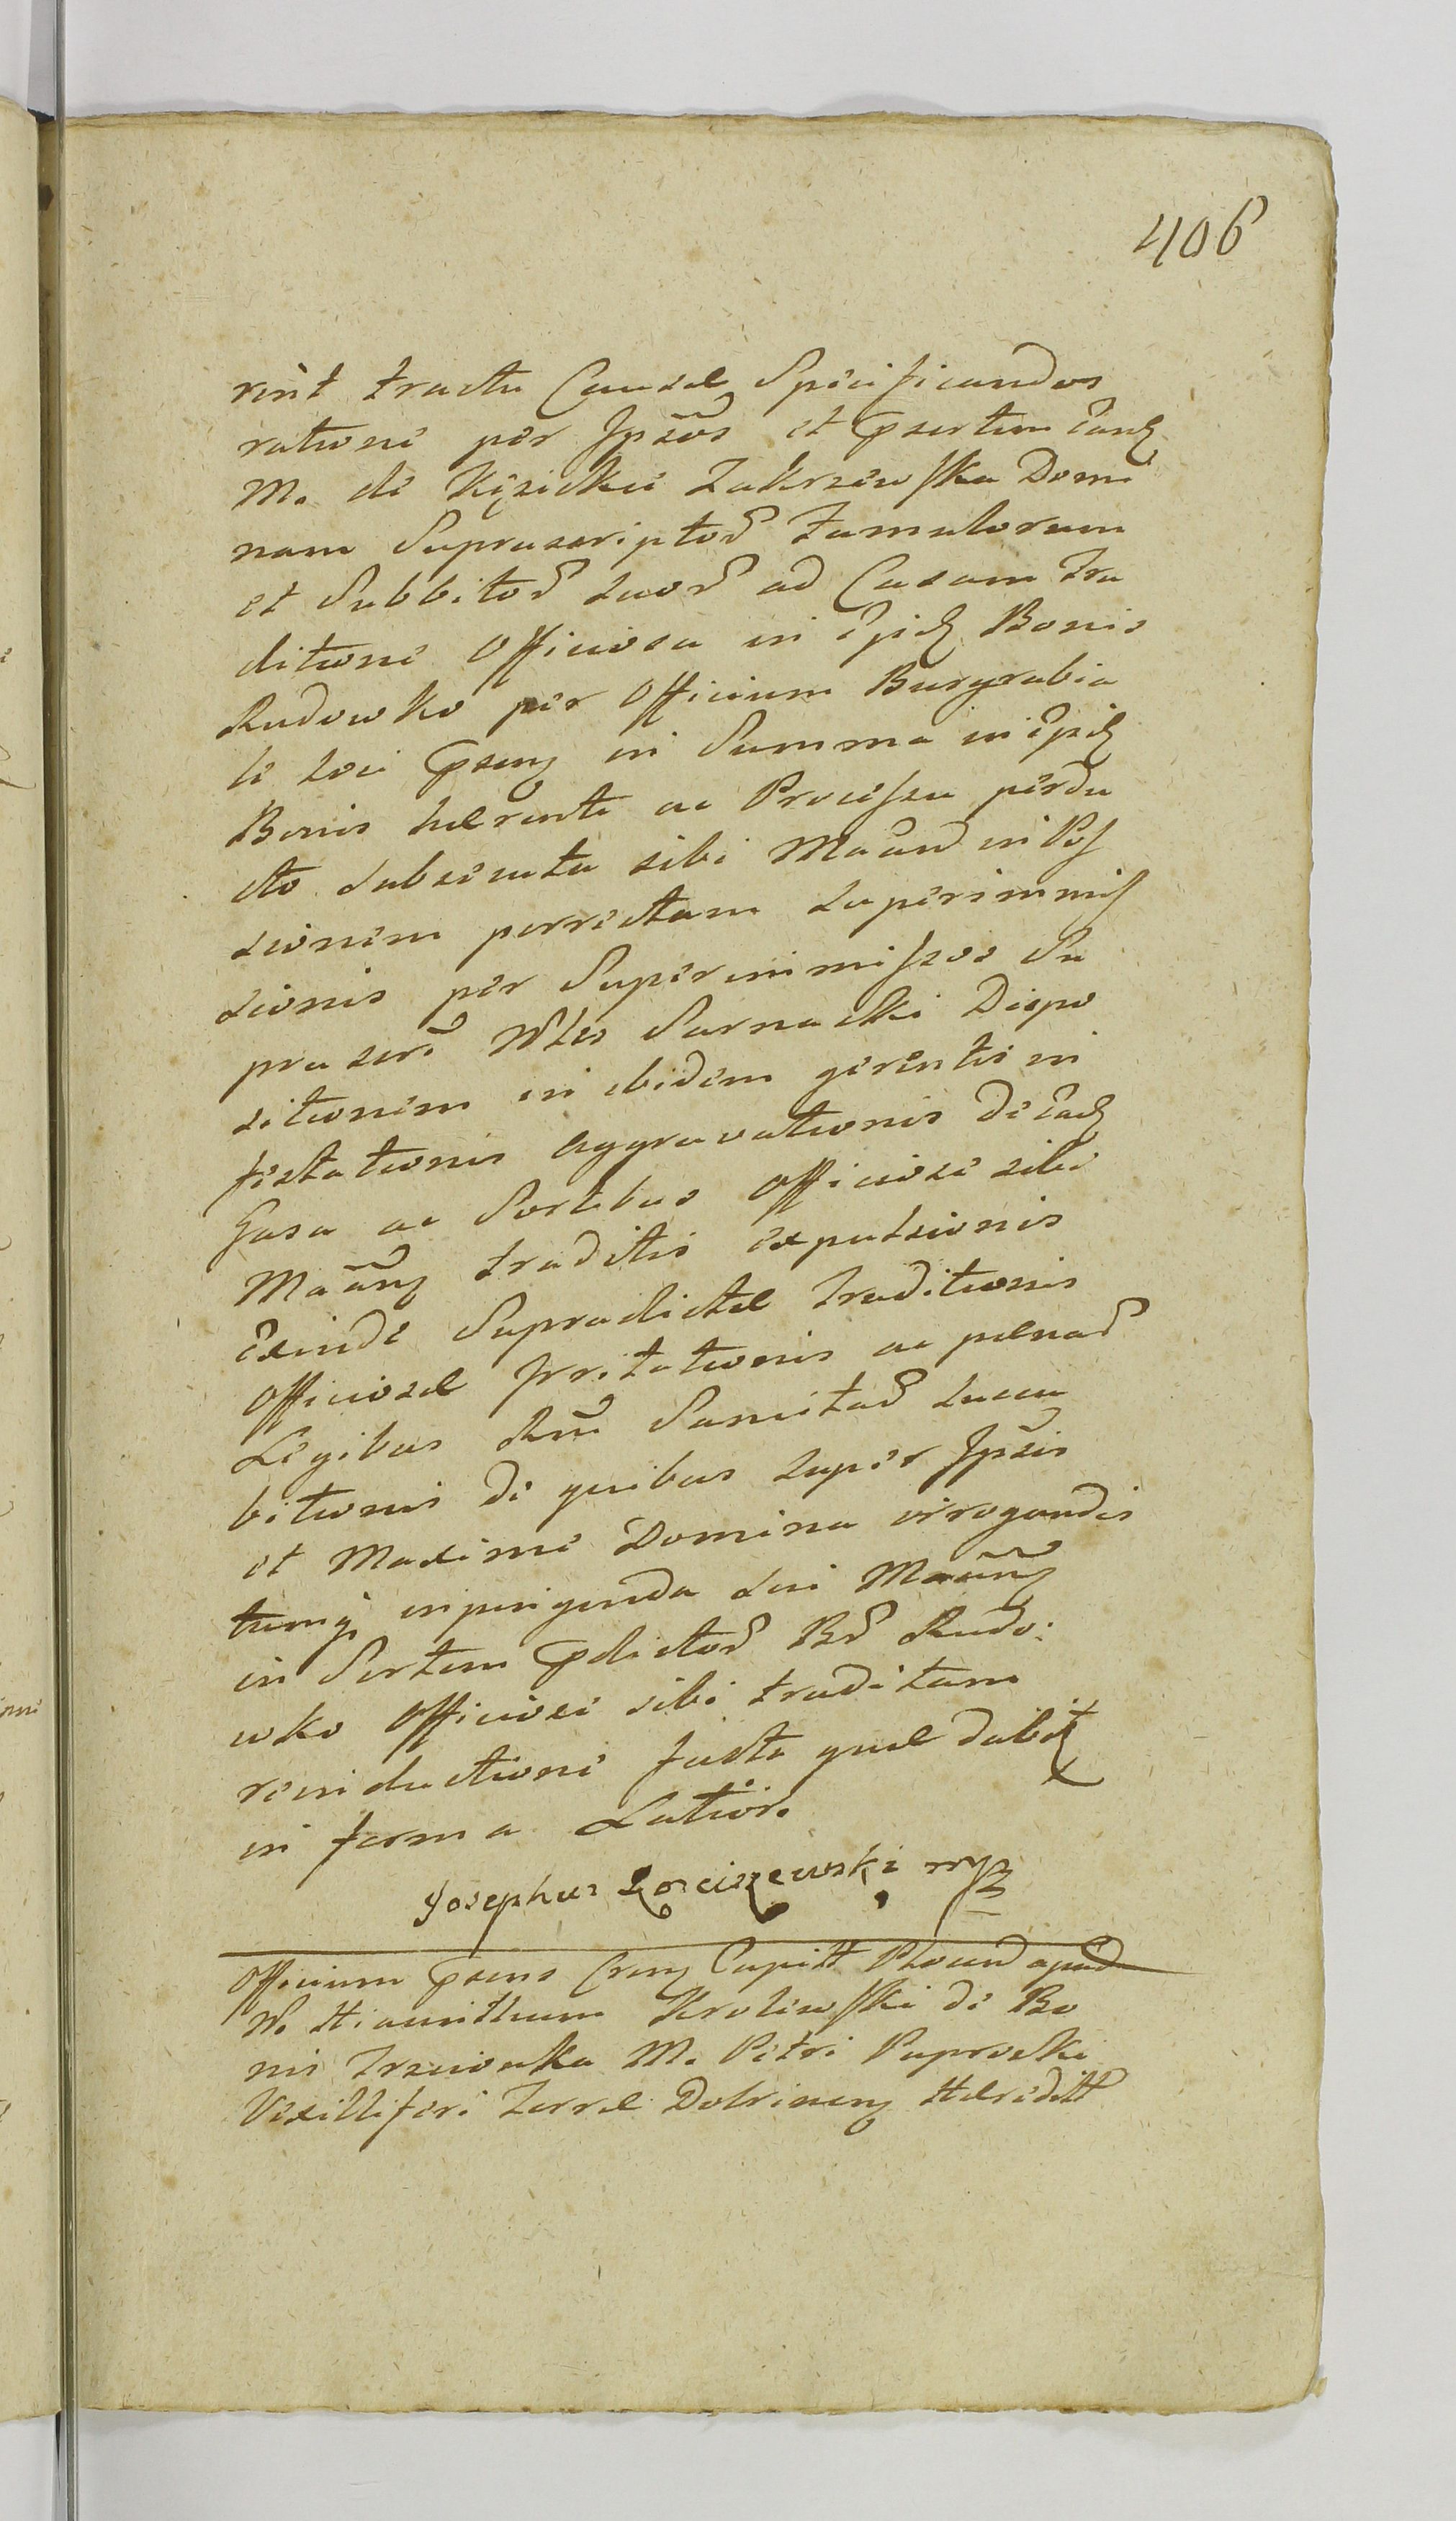 406
rint tractu Causae Specificandos
ratione per Ipsos et psertim eand
M. de Kęsickie Zakrzewska Domi
nam Suprascriptor Famulorum
et Subbitor suor ad Causam Tra
ditione Officiosa in ejsd Bonis
Rudowko per Officium Burgrabia
le loci psenq in Summa in ejsd
Bonis haerente ac Processu perdu
cto subsecuta sibi Maand in Pos
sionem porrectam superimmis
sionis per Superimmissos Su
prascri Wles Sarnacki Dispo
sitionem in ibidem gerentis in
festationis aggravationis de ead
Gasa ac Sortibus Officiose sibi
Maanq traditis expulsionis
Exinde Supradictae Traditionis
Officiosae Irritationis ac paenar
Legibus Rni Sancitar Luen
bitionis de quibus super Ipsis
et Maxime Domina irrogandis
tumq inpingenda sui Maanq
in Sortem pdictor Br Rudo:
wko Officiose sibi traditam
reinductione facta quae dabit
in forma Latior.
Josephus Łosciszewski mp
Officium psens Crens Capitt Plocen apud
W. Hiacinthum Krolewski de Bo
nis Trzcionka M. Petri Paprocki
Vexilliferi Terrae Dobrinenq Haereditt